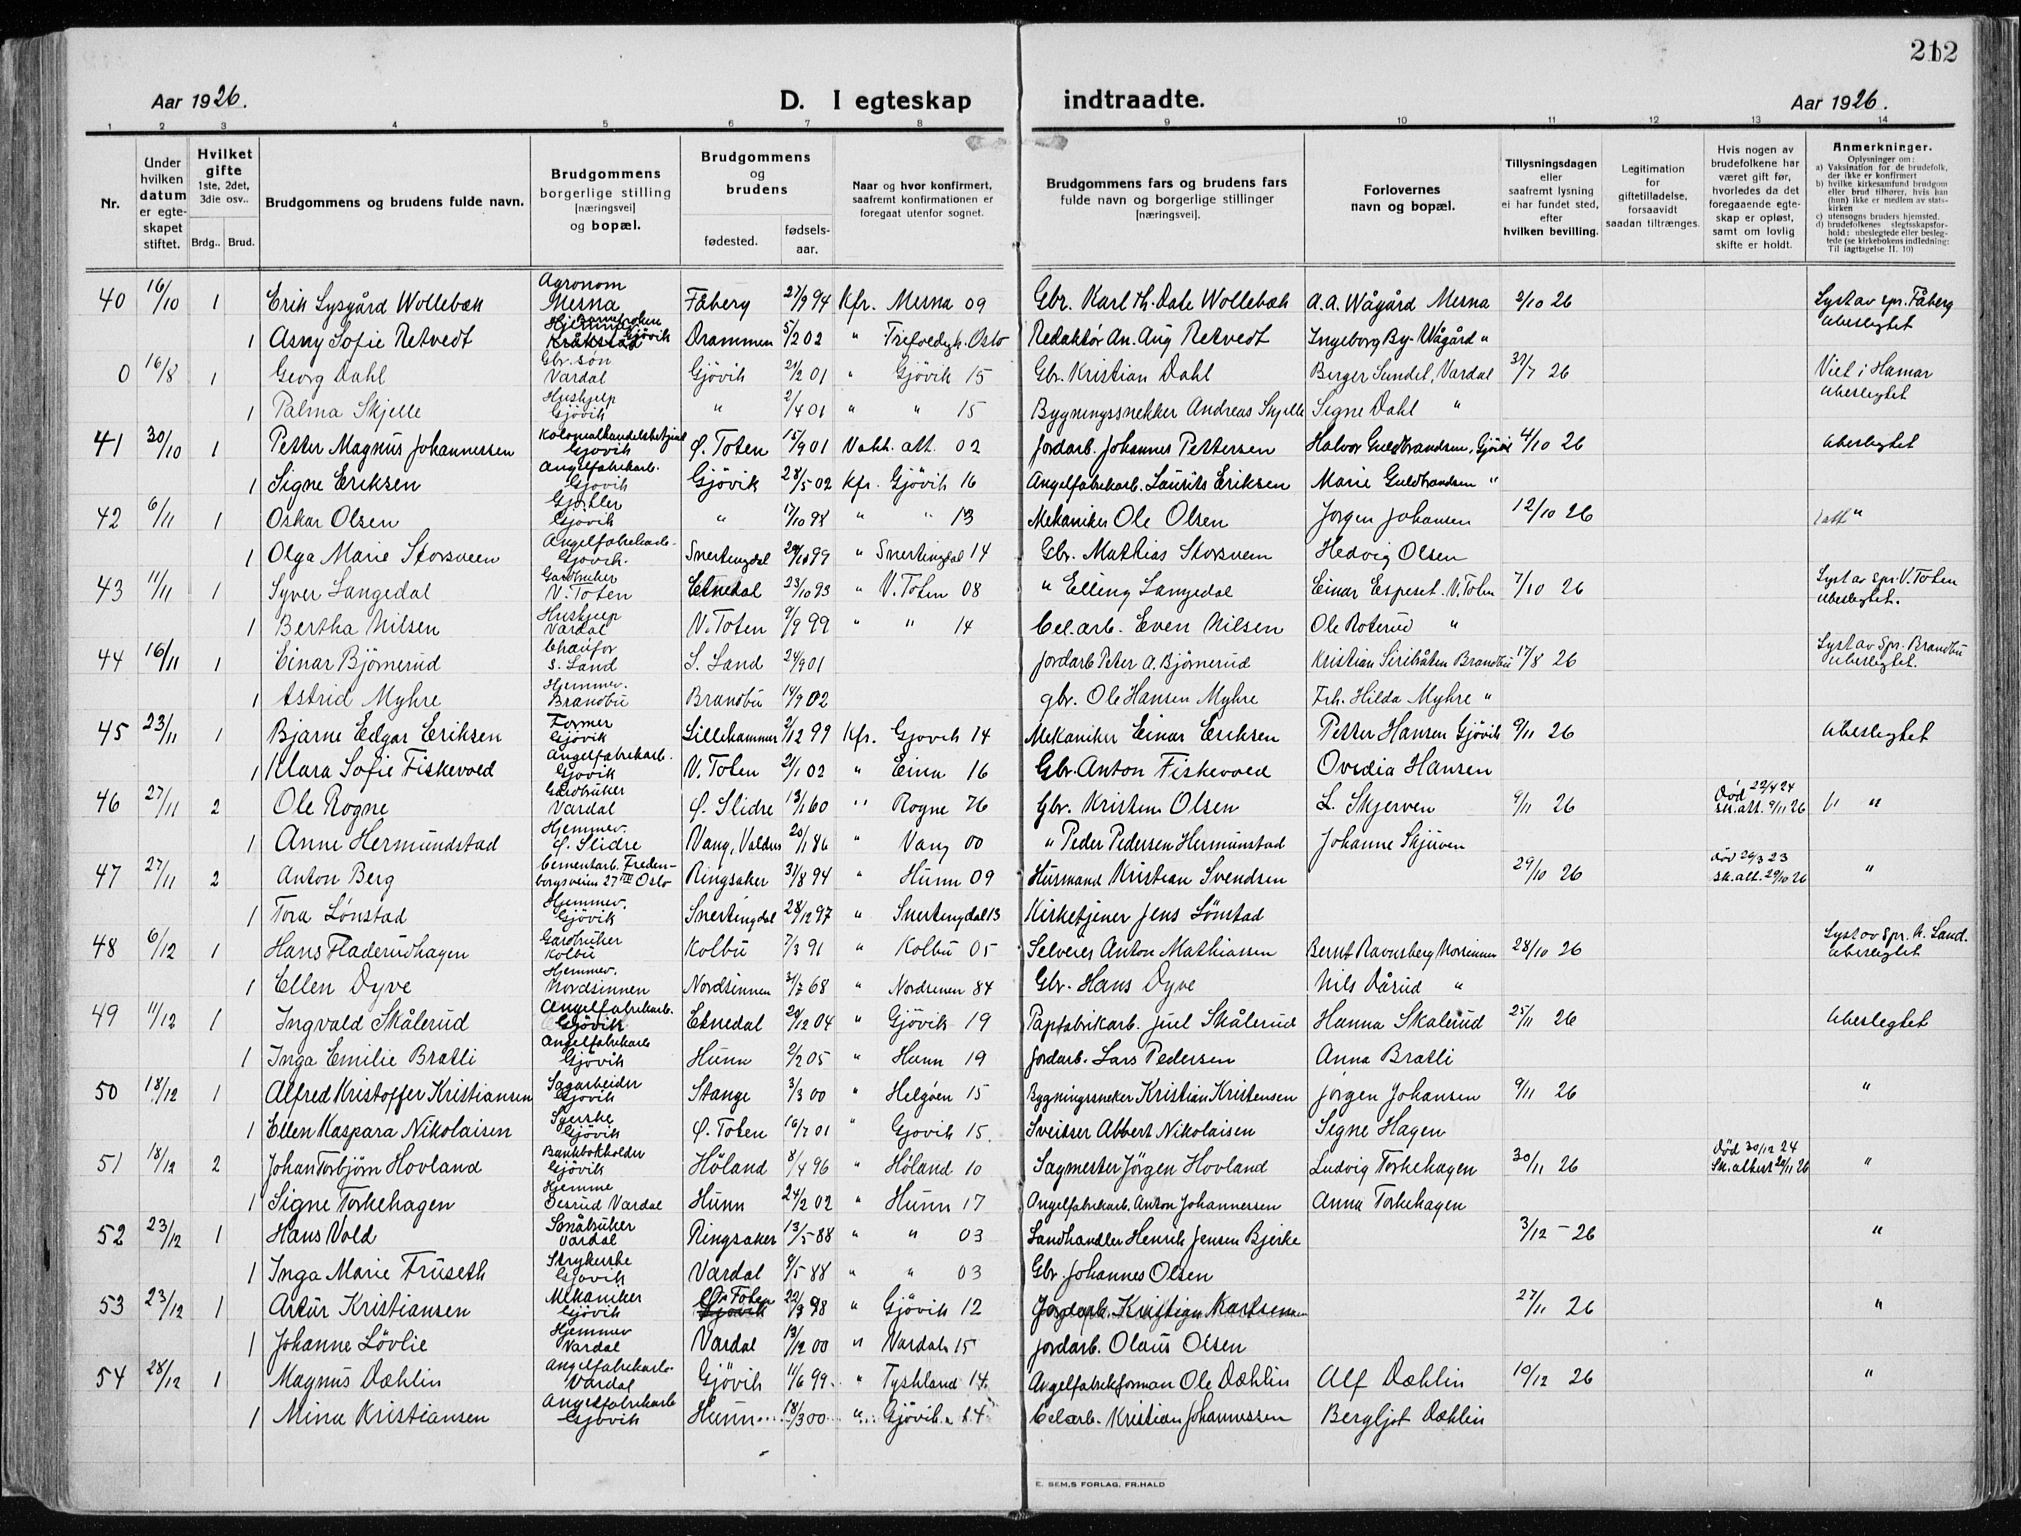 212
Aar 1926.
D. I egteskap indtraadte.
Aar 1926.
1 2 3 4 5 6 7 8 9 10 11 12 13 14
Nr.
Under hvilken datum er egteskapet stiftet.
Hvilket gifte 1ste, 2det, 3die osv..
Brdg.. Brud.
Brudgommens og brudens fulde navn.
Brudgommens borgerlige stilling [næringsvei] og bopæl.
Brudgommens og brudens
fødested. fødsels-aar.
Naar og hvor konfirmert, saafremt konfirmationen er foregaat utenfor sognet.
Brudgommens fars og brudens fars fulde navn og borgerlige stillinger [næringsvei].
Forlovernes navn og bopæl.
Tillysningsdagen eller saafremt lysning ei har fundet sted, efter hvilken bevilling.
Legitimation for giftetilladelse, forsaavidt saadan tiltrænges.
Hvis nogen av brudefolkene har været gift før, hvorledes da det foregaaende egteskap er opløst, samt om lovlig skifte er holdt.
Anmerkninger.
Oplysninger om:
a) Vaksination for de brudefolk, der ikke er konfirmert
b) hvilke kirkesamfund brudgom eller brud tilhører, hvis han (hun) ikke er medlem av statskirken
c) utensogns bruders hjemsted.
d) brudefolkenes slegtsskapsforhold: ubeslegtede eller beslegtede (se kirkebokens indledning: Til iagttagelse II. 10)
40 16/10 1 Erik Lysgård Wollebæk Agronom Mesna Fåberg 27/9 94 Kfr. Mesna 09 Gbr. Karl Th. Dale Wollebæk A.A. Wågård Mesna 2/10 26 Lyst av spr. Fåberg Ubeslegtet
1 Asny Sofie Retvedt Gjövik Drammen 5/2 02 " Trefoldigh. Oslo Redaktör An. Aug Retvedt Ingeborg By-Wågård "
0 16/8 1 Georg Dahl Gbr. sön Vardal Gjövik 21/2 01 " Gjövik 15 Gbr. Kristian Dahl Berger Sundet, Vardal 30/7 26 Viet i Hamar Ubeslegtet
1 Palma Skjelle Hushjelp Gjövik " 2/4 01 " " 15 Bygningssnekker Andreas Skjelle Signe Dahl "
41 30/10 1 Petter Magnus Johannessen Kolonialhandelsbetjent Gjövik Ø. Toten 15/9 01 Vakk. att. 02 Jordarb. Johannes Pettersen Halvor Guldbrandsen, Gjövik 4/10 26 Ubeslegtet
1 Signe Eriksen Angelfabrikarb. Gjövik Gjövik 28/5 02 Kfr. Gjövik 16 Angelfabrikarb. Laurits Eriksen Marie Guldbrandsen "
42 6/11 1 Oskar Olsen Gjörtler Gjövik " 17/10 98 " " 13 Mekaniker Ole Olsen Jörgen Johansen 12/10 26 "
1 Olga Marie Storsveen Angelfabrikarb. Gjövik. Snertingdal 29/10 99 " Snertingdal 14 Gbr. Mathias Storsveen Hedvig Olsen
43 11/11 1 Syver Langedal Gardbruker V. Toten Etnedal 23/10 93 " V. Toten 08 " Elling Langedal Einar Espeset. V. Toten 7/10 26 Lyst av spr. V. Toten Ubeslegtet.
1 Bertha Nilsen Hushjelp Vardal V. Toten 9/9 99 " " 14 Cel. arb. Even Nilsen Ole Roterud "
44 16/11 1 Einar Björnerud Chauför S. Land S. Land 24/9 01 Jordarb Peter A. Björnerud Kristian Siribråten Brandbu 17/8 26 Lyst av Spr. Brandbu Ubeslegtet.
1 Astrid Myhre Hjemmev. Brandbu Brandbu 14/9 02 gbr. Ole Hansen Myhre Frk. Hilda Myhre "
45 23/11 1 Bjarne Edgar Eriksen Former Gjövik Lillehammer 2/12 99 Kfr. Gjövik 14 Mekaniker Einar Eriksen Petter Hansen Gjövik 9/11 26 Ubeslegtet
1 Klara Sofie Fiskevold Angelfabrikarb. Gjövik V. Toten 21/1 02 " Eina 16 Gbr. Anton Fiskevold Ovidia Hansen
46 27/11 2 Ole Rogne Gardbruker Vardal Ø. Slidre 13/1 60 " Rogne 76 Gbr. Kristen Olsen L. Skjerven 9/11 26 Död 22/4 24 sk. att. 9/11 26 "
1 Anne Hermundstad Hjemmev. Ø. Slidre Vang, Valdres 20/1 86 " Vang 00 " Peder Pedersen Hermunstad Johanne Skjerven
47 27/11 2 Anton Berg Cementarb. Fredensborgsveien 27 III Oslo Ringsaker 31/8 94 " Hunn 09 Husmand Kristian Svendsen 29/10 26 Död 29/3 23 sk. att. 29/10 26 "
1 Tora Lönstad Hjemmev. Gjövik Snertingdal 28/12 97 " Snertingdal 13 Kirketjener Jens Lönstad
48 6/12 1 Hans Fladerudhagen Gardbruker Kolbu Kolbu 7/3 91 " Kolbu 05 Selveier Anton Mathiassen Bernt Ravnsberg Nordsinnen 28/10 26 Lyst av Spr. N. Land. Ubeslegtet
1 Ellen Dyve Hjemmev. Nordsinnen Nordsinnen 3/7 68 " Nordsinnen 84 Gbr. Hans Dyve Nils Dårud "
49 11/12 1 Ingvald Skålerud Angelfabrikarb. Gjövik Etnedal 29/12 04 " Gjövik 19 Papfabrikarb. Juel Skålerud Hanna Skalerud 25/11 26 Ubeslegtet
1 Inga Emilie Bratli Angelfabrikarb Gjövik Hunn 9/2 05 " Hunn 19 Jordarb. Lars Pedersen Anna Bratli
50 18/12 1 Alfred Kristoffer Kristiansen Sagarbeider Gjövik Stange 3/3 00 " Helgöen 15 Bygningssneker Kristian Kristensen Jörgen Johansen 9/11 26 "
1 Ellen Kaspara Nikolaisen Syerske Gjövik Ø. Toten 16/7 01 " Gjövik 15. Sveitser Abbert Nikolaisen Signe Hagen
51 18/12 2 Johan Torbjörn Hovland Bankbokholder Gjövik Höland 8/4 96 " Höland 10 Sagmester Jörgen Hovland Ludvig Torkehagen 30/11 26 Död 30/12 24 Sk. attest 29/11 26 "
1 Signe Torkehagen Hjemme Vardal Hunn 24/2 02 " Hunn 17 Angelfabrikarb. Anton Johannessen Anna Torkehagen
52 23/12 1 Hans Vold Småbruker Vardal Ringsaker 13/5 88 " " 03 Landhandler Henrik Jensen Bjerke 3/12 - 26 "
1 Inga Marie Fruseth Strykerske Gjövik Vardal 9/5 88 " " 03 Gbr. Johannes Olsen
53 23/12 1 Artur Kristiansen Mekaniker Gjövik Ø. Toten 22/3 98 " Gjövik 12 Jordarb. Kristian 27/11 26 "
1 Johanne Lövlie Hjemmev Vardal Vardal 13/12 00 " Vardal 15 Jordarb. Olaus Olsen
54 28/12 1 Magnus Dæhlin Angelfabrikarb. Vardal Gjövik 11/6 99. " Tyskland 14. Angelfabrikforman Ole Dæhlin Alf Dæhlin 10/12 26 "
1 Mina Kristiansen Angelfabrikarb Gjövik Hunn 18/3 00 " Gjövik 14 Celarb. Kristian Johannessen Bergljot Dæhlin
E. SEM,S FORLAG, FR.HALD